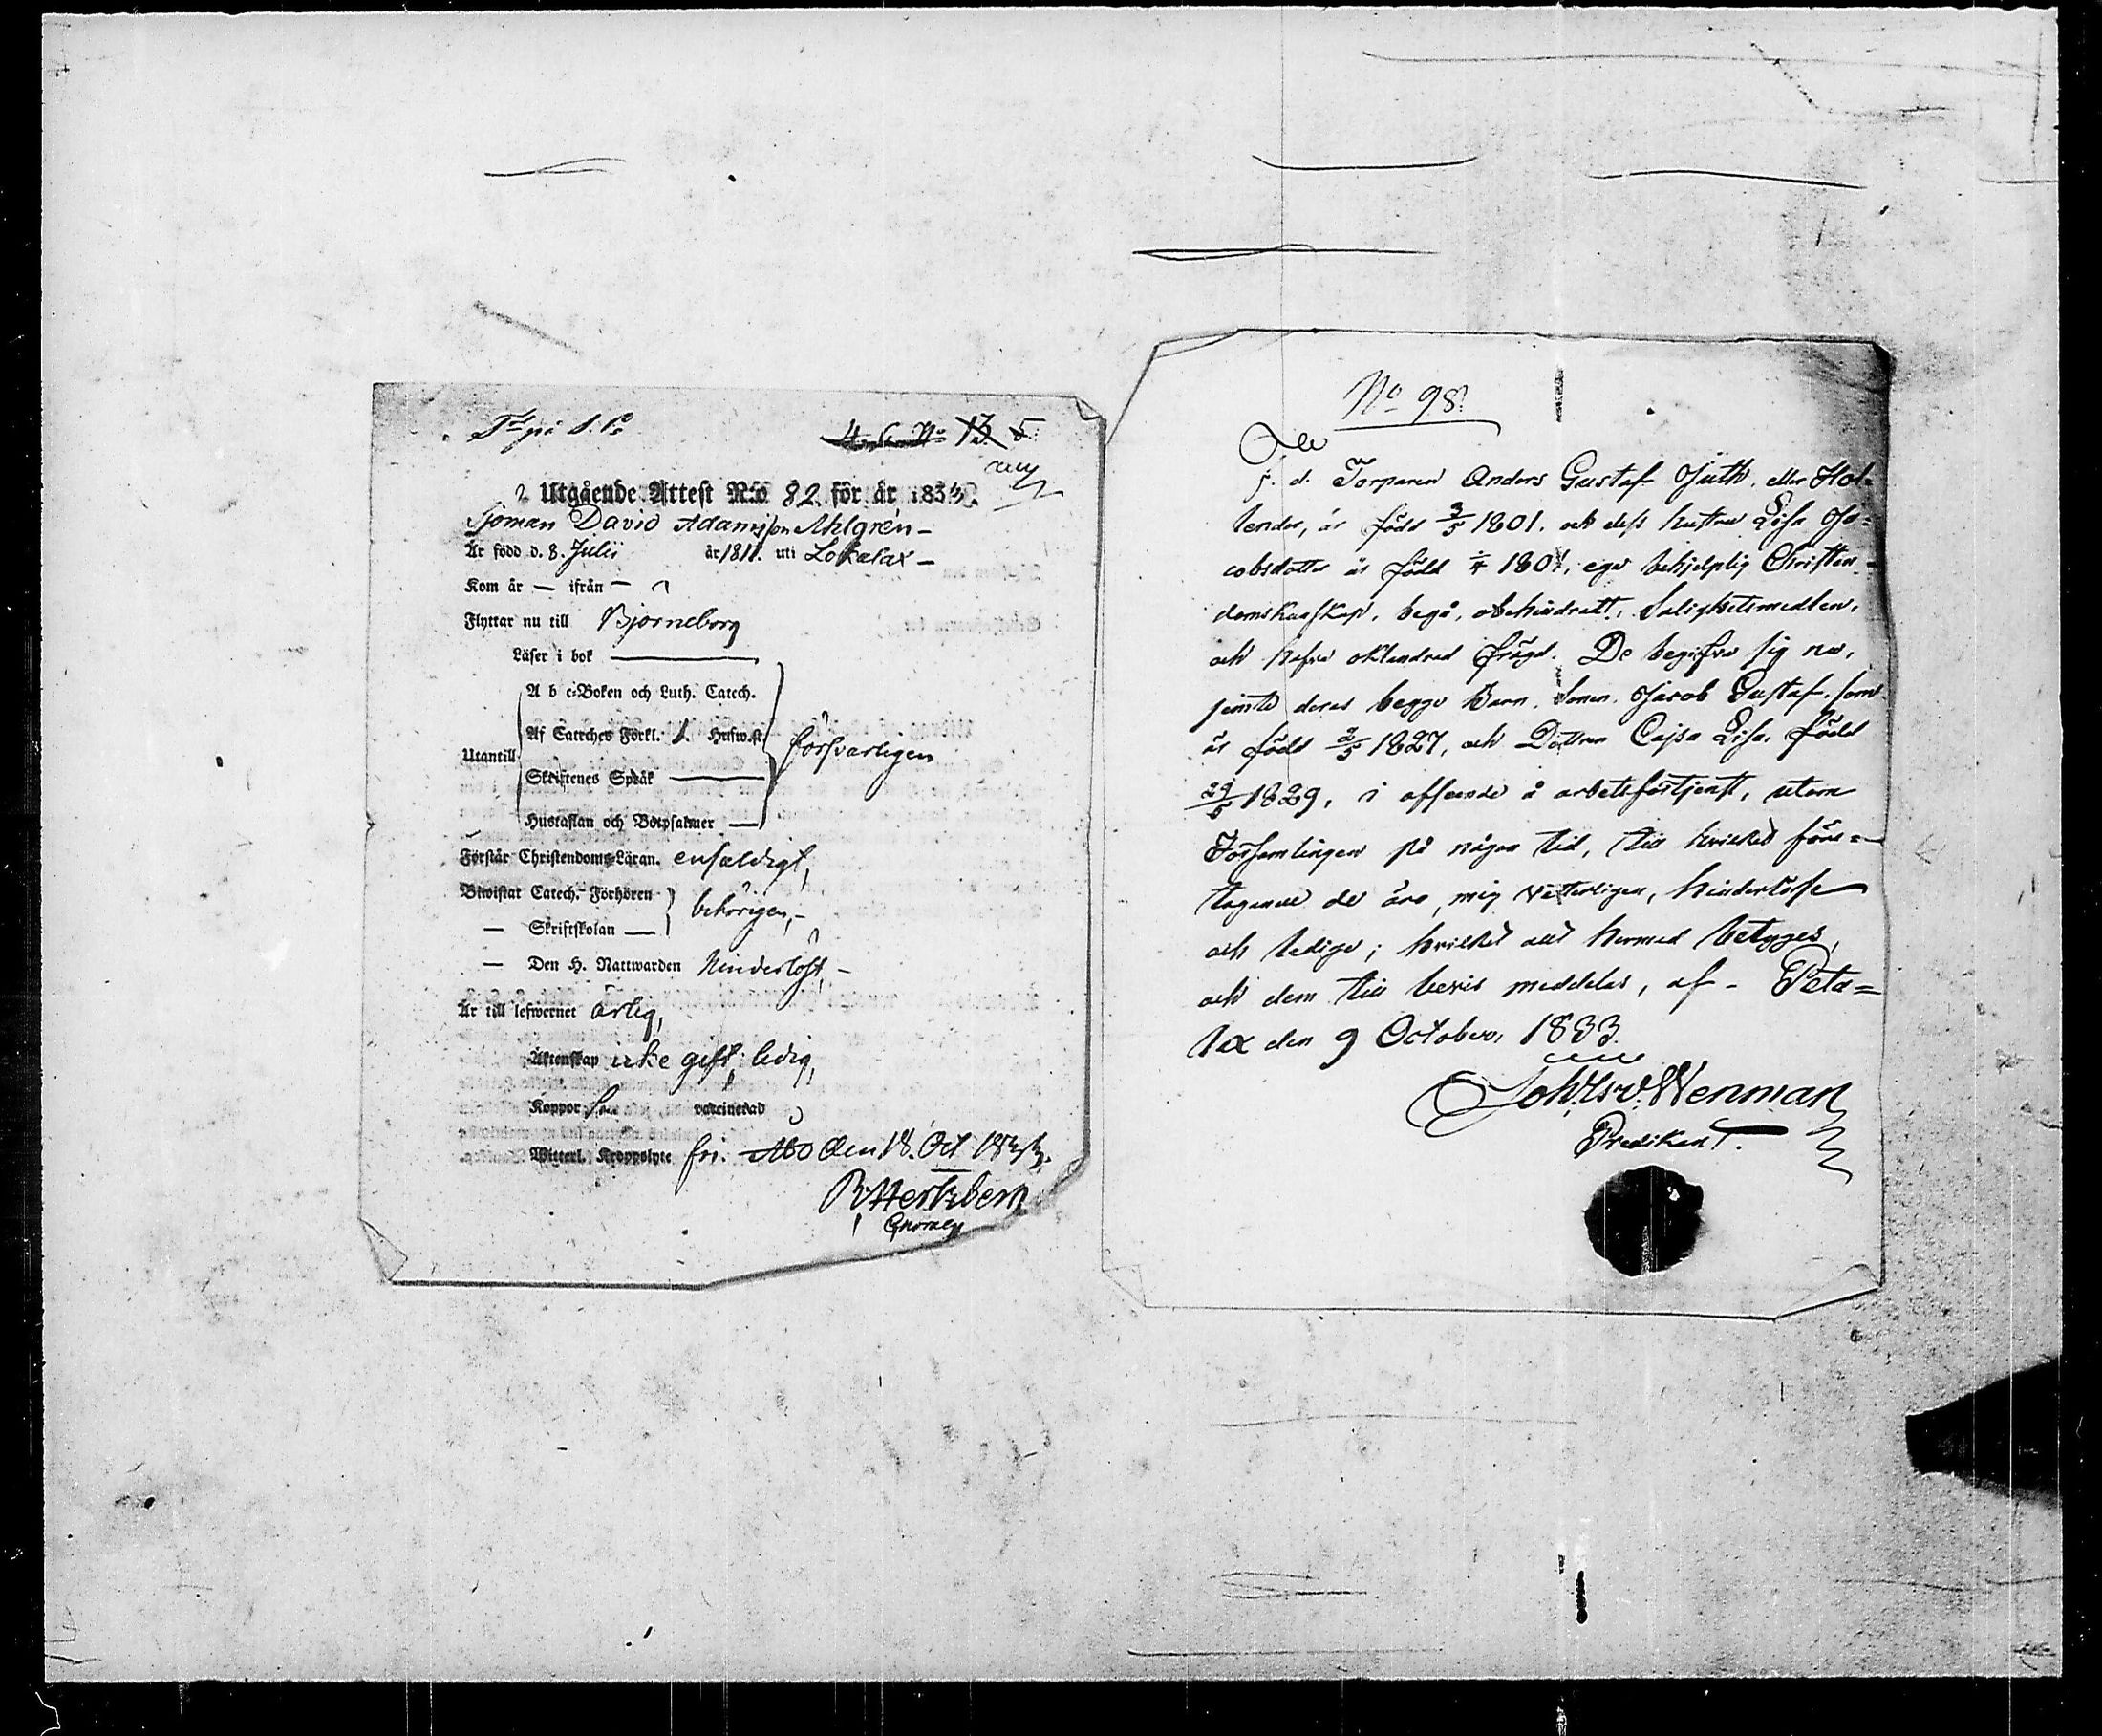 No 13. 5.
Utgående Attest N:o 82 för år 1833.
Sjöman David Adamsson Ahlgrén –
Är född d. 8. Julii år 1811. uti Lokalax –
Kom år — ifrån —
Flyttar nu till Björneborg
Läser i bok
A b c-Boken och Luth. Catech.
Af Catechet Förkl. 1. Husw.st
Utantill försvarligen
Skriftenes Språk
Hustaflan och Botpsalmer
Förstår Christendoms-Läran. enfaldigt,
Biwistat Catech.-Förhören behörigen, –
— Skriftskolan
— Den H. Nattwarden hinderlöst, –
Är till lefwernet ärlig,
Äktenskap icke gift; ledig,
Koppor vaccinerad
Witterl. Kroppslyte fri. Åbo den 18. Oct 1833.
R Hertzberg
No 98.
f. d. Torparen Anders Gustaf Juth, eller Hol-
lender, är född 3/5 1801. och dess hustru Lisa Ja=
cobsdotter är född 1801, ega behjelplig Christen-
domskunskap, begå, obehindradt, Salighetsmedlen,
och hafva oklandrad frägd. De begifva sig nu,
jemte deras begge Barn, Sonen Jacob Gustaf, som
är född 3/5 1827, och Dottren Cajsa Lisa, född
29/5 1829, i afseende å arbetsförtjenst, utom
Församlingen på någon tid, till hvilket före=
tagande de äro, mig vetterligen, hinderlöse
och ledige; hvilket allt hermed betyges,
och dem till bevis meddelas, af – Peta=
lax den 9 October, 1833.
Joh. Wenman
Predikant.